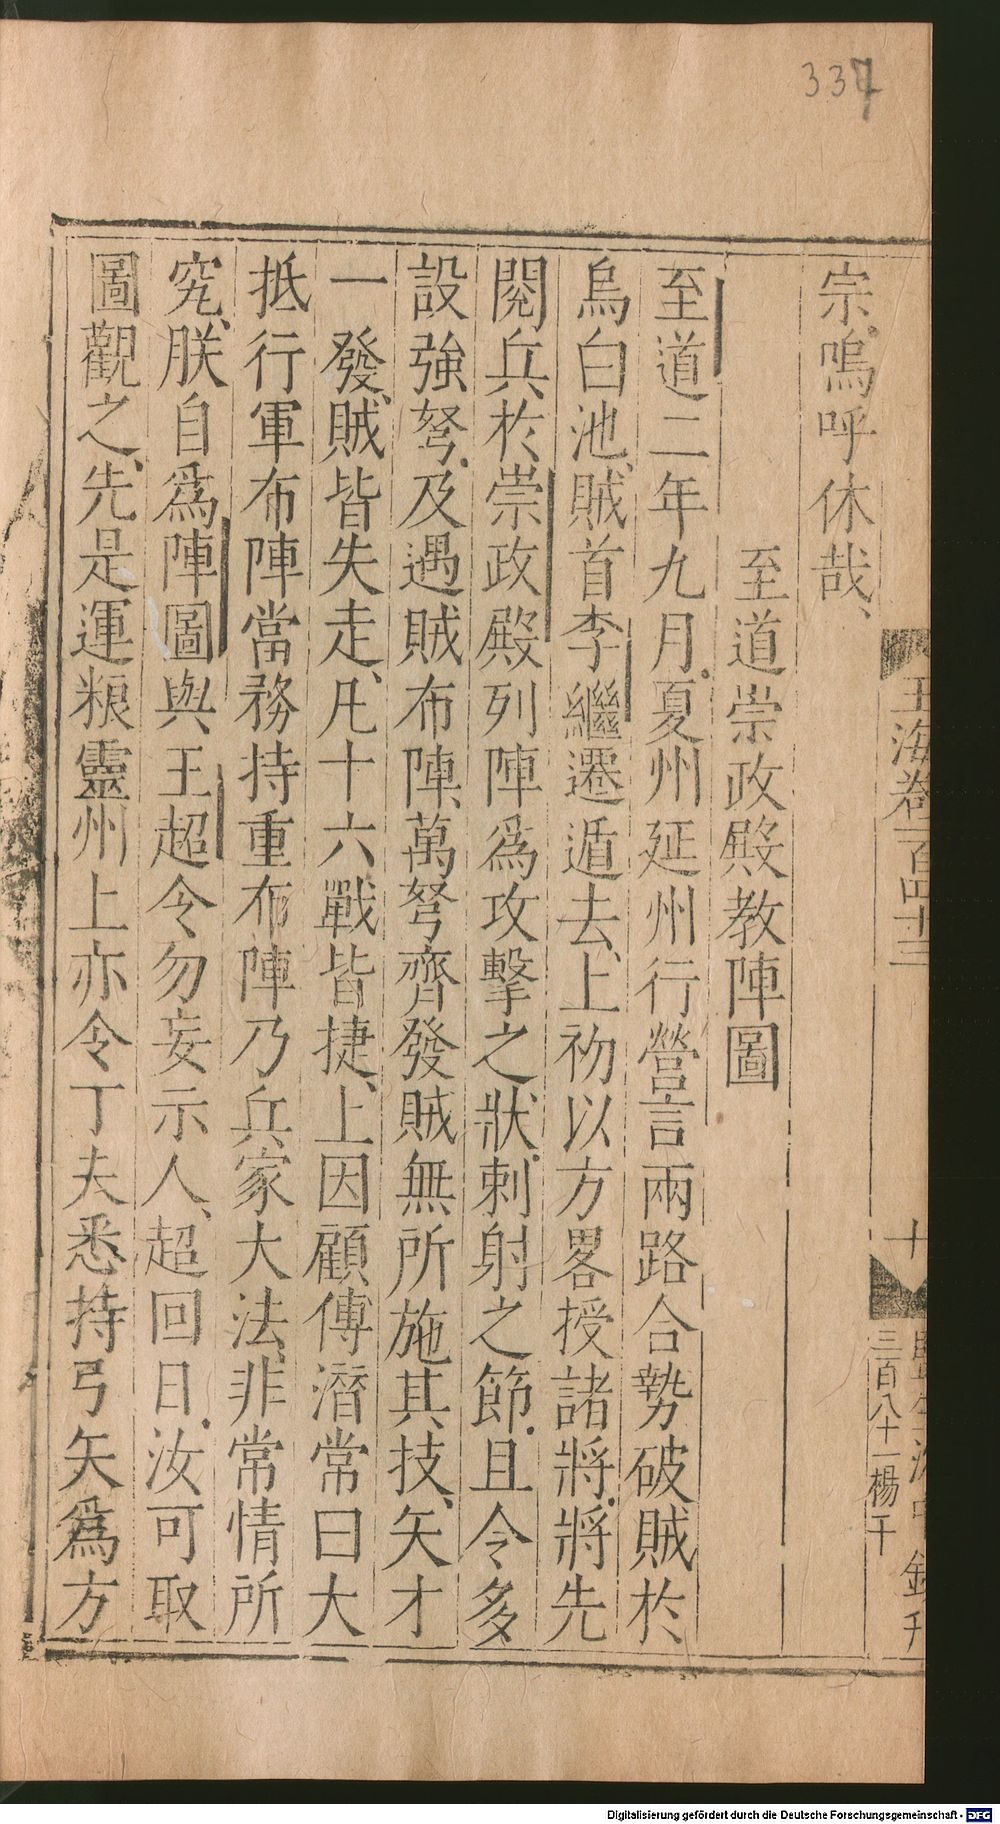 337
宗嗚呼休哉
至道崇政殿教陣圖
至道二年九月夏州延州行營言兩路合勢破賊於
烏白池賊首李繼遷遁去上初以方畧授諸將將先
閱兵於崇政殿列陣爲攻擊之狀刺射之節且令多
設強弩及遇賊布陣萬弩齊發賊無所施其技矢才
一發賊皆失走凡十六戰皆捷上因顧傅潛常曰大
抵行軍布陣當務持重布陣乃兵家大法非常情所
究朕自爲陣圖與王超令勿妄示人超回日汝可取
圖觀之先是運粮靈州上亦令丁夫悉持弓矢爲方
玉海卷一百四十三
十
三百八十一楊干
Digitalisierung gefördert durch die Deutsche Forschungsgemeinschaft - DFG